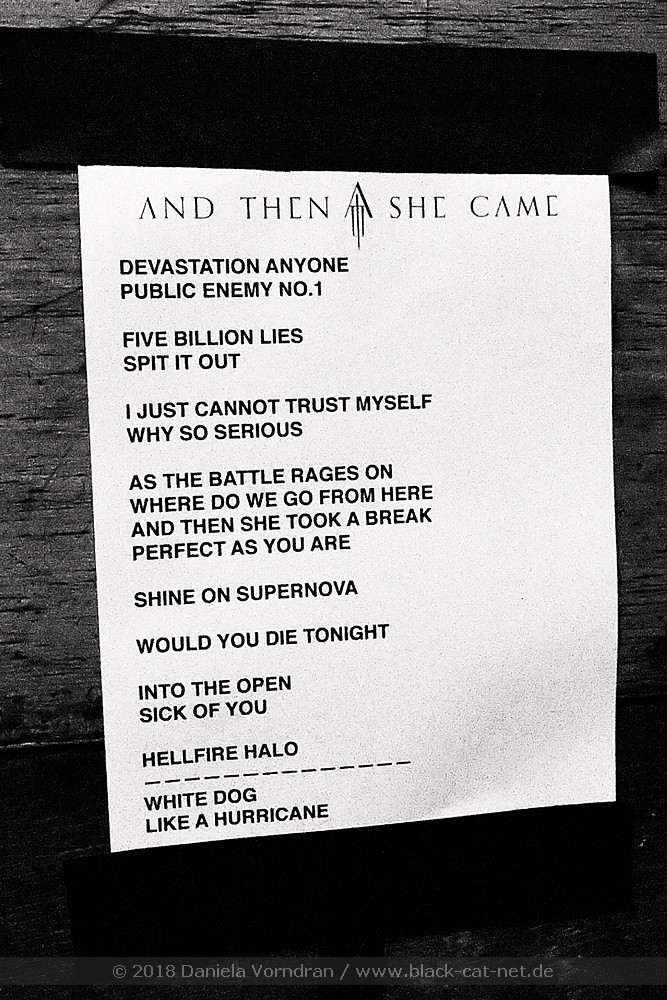 AND THEN SHE CAME
DEVASTATION ANYONE
PUBLIC ENEMY NO.1
FIVE BILLION LIES
SPIT IT OUT
I JUST CANNOT TRUST MYSELF
WHY SO SERIOUS
AS THE BATTLE RAGES ON
WHERE DO WE GO FROM HERE
AND THEN SHE TOOK A BREAK
PERFECT AS YOU ARE
SHINE ON SUPERNOVA
WOULD YOU DIE TONIGHT
INTO THE OPEN
SICK OF YOU
HELLFIRE HALO
______________
WHITE DOG
LIKE A HURRICANE
© 2018 Daniela Vorndran / www.black-cat-net.de